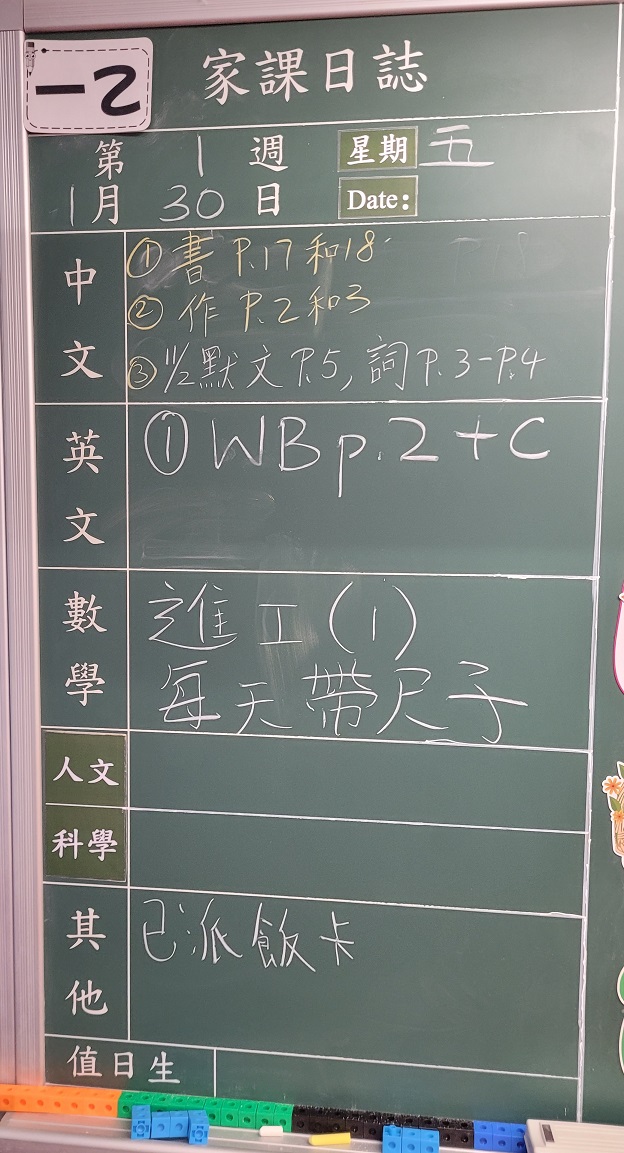 一2
家課日誌
第 1 週 星期 五
1月 30 日 Date:
中文
① 書 P.17 和 18
② 作 P.2 和 3
③ 11/2 默文 P.5, 詞 P.3-P.4
英文
① WB p.2 + C
數學
進工(1)
每天帶尺子
人文
科學
其他
已派飯卡
值日生